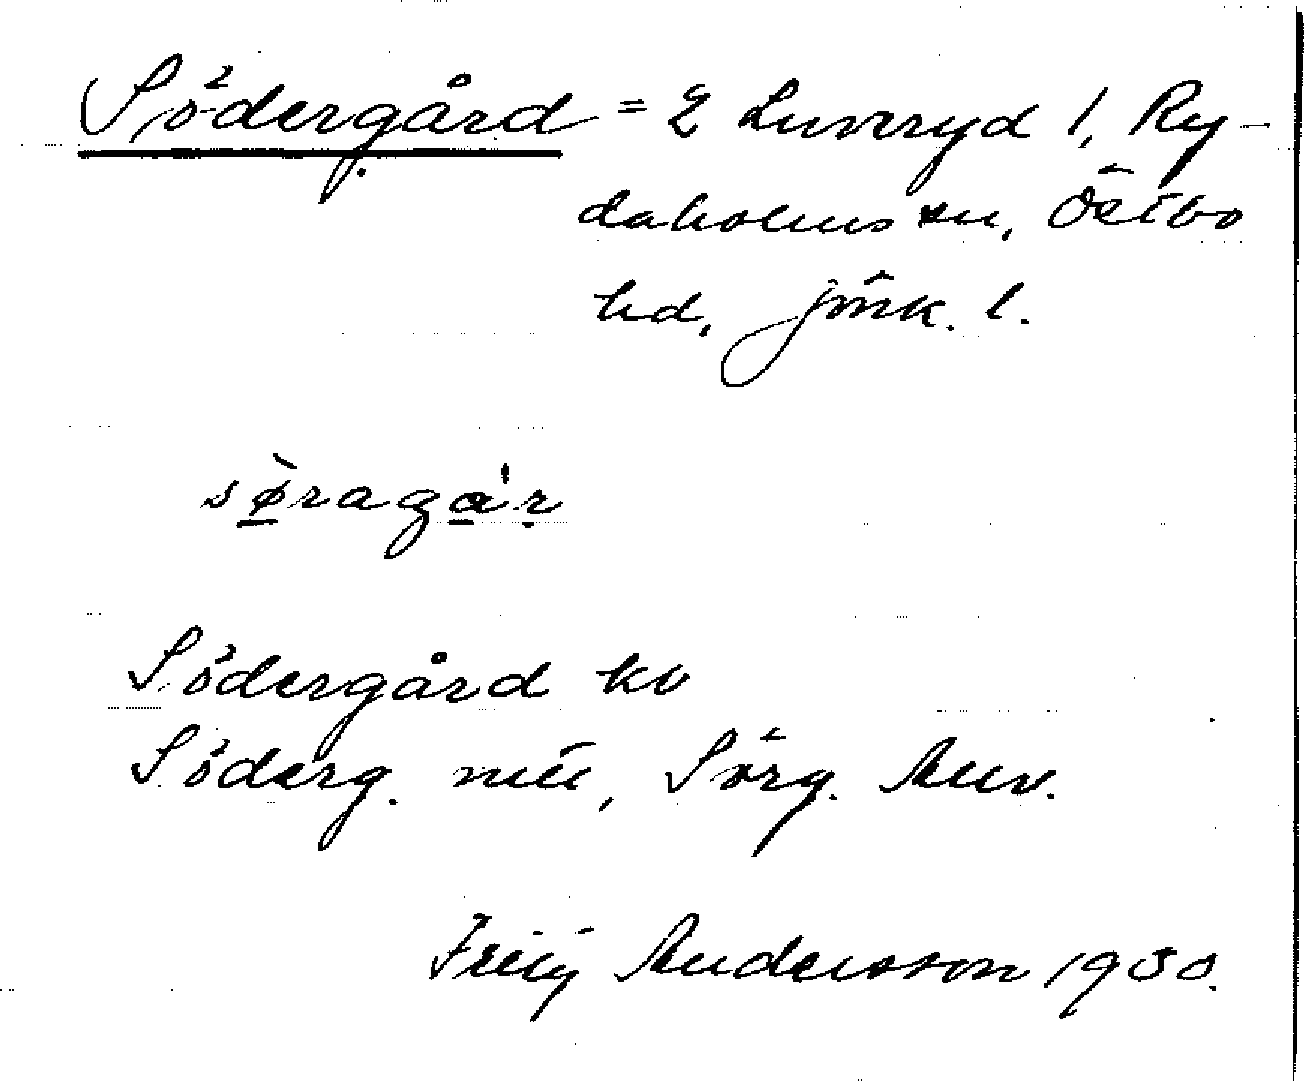 Södergård = 2 Luvaryd 1, Ry-
daholms sn, Östbo
hd, Jönk. l.
søragár
Södergård ko
Söderg. nu, Sörg. Anv.
Andersson 1930.